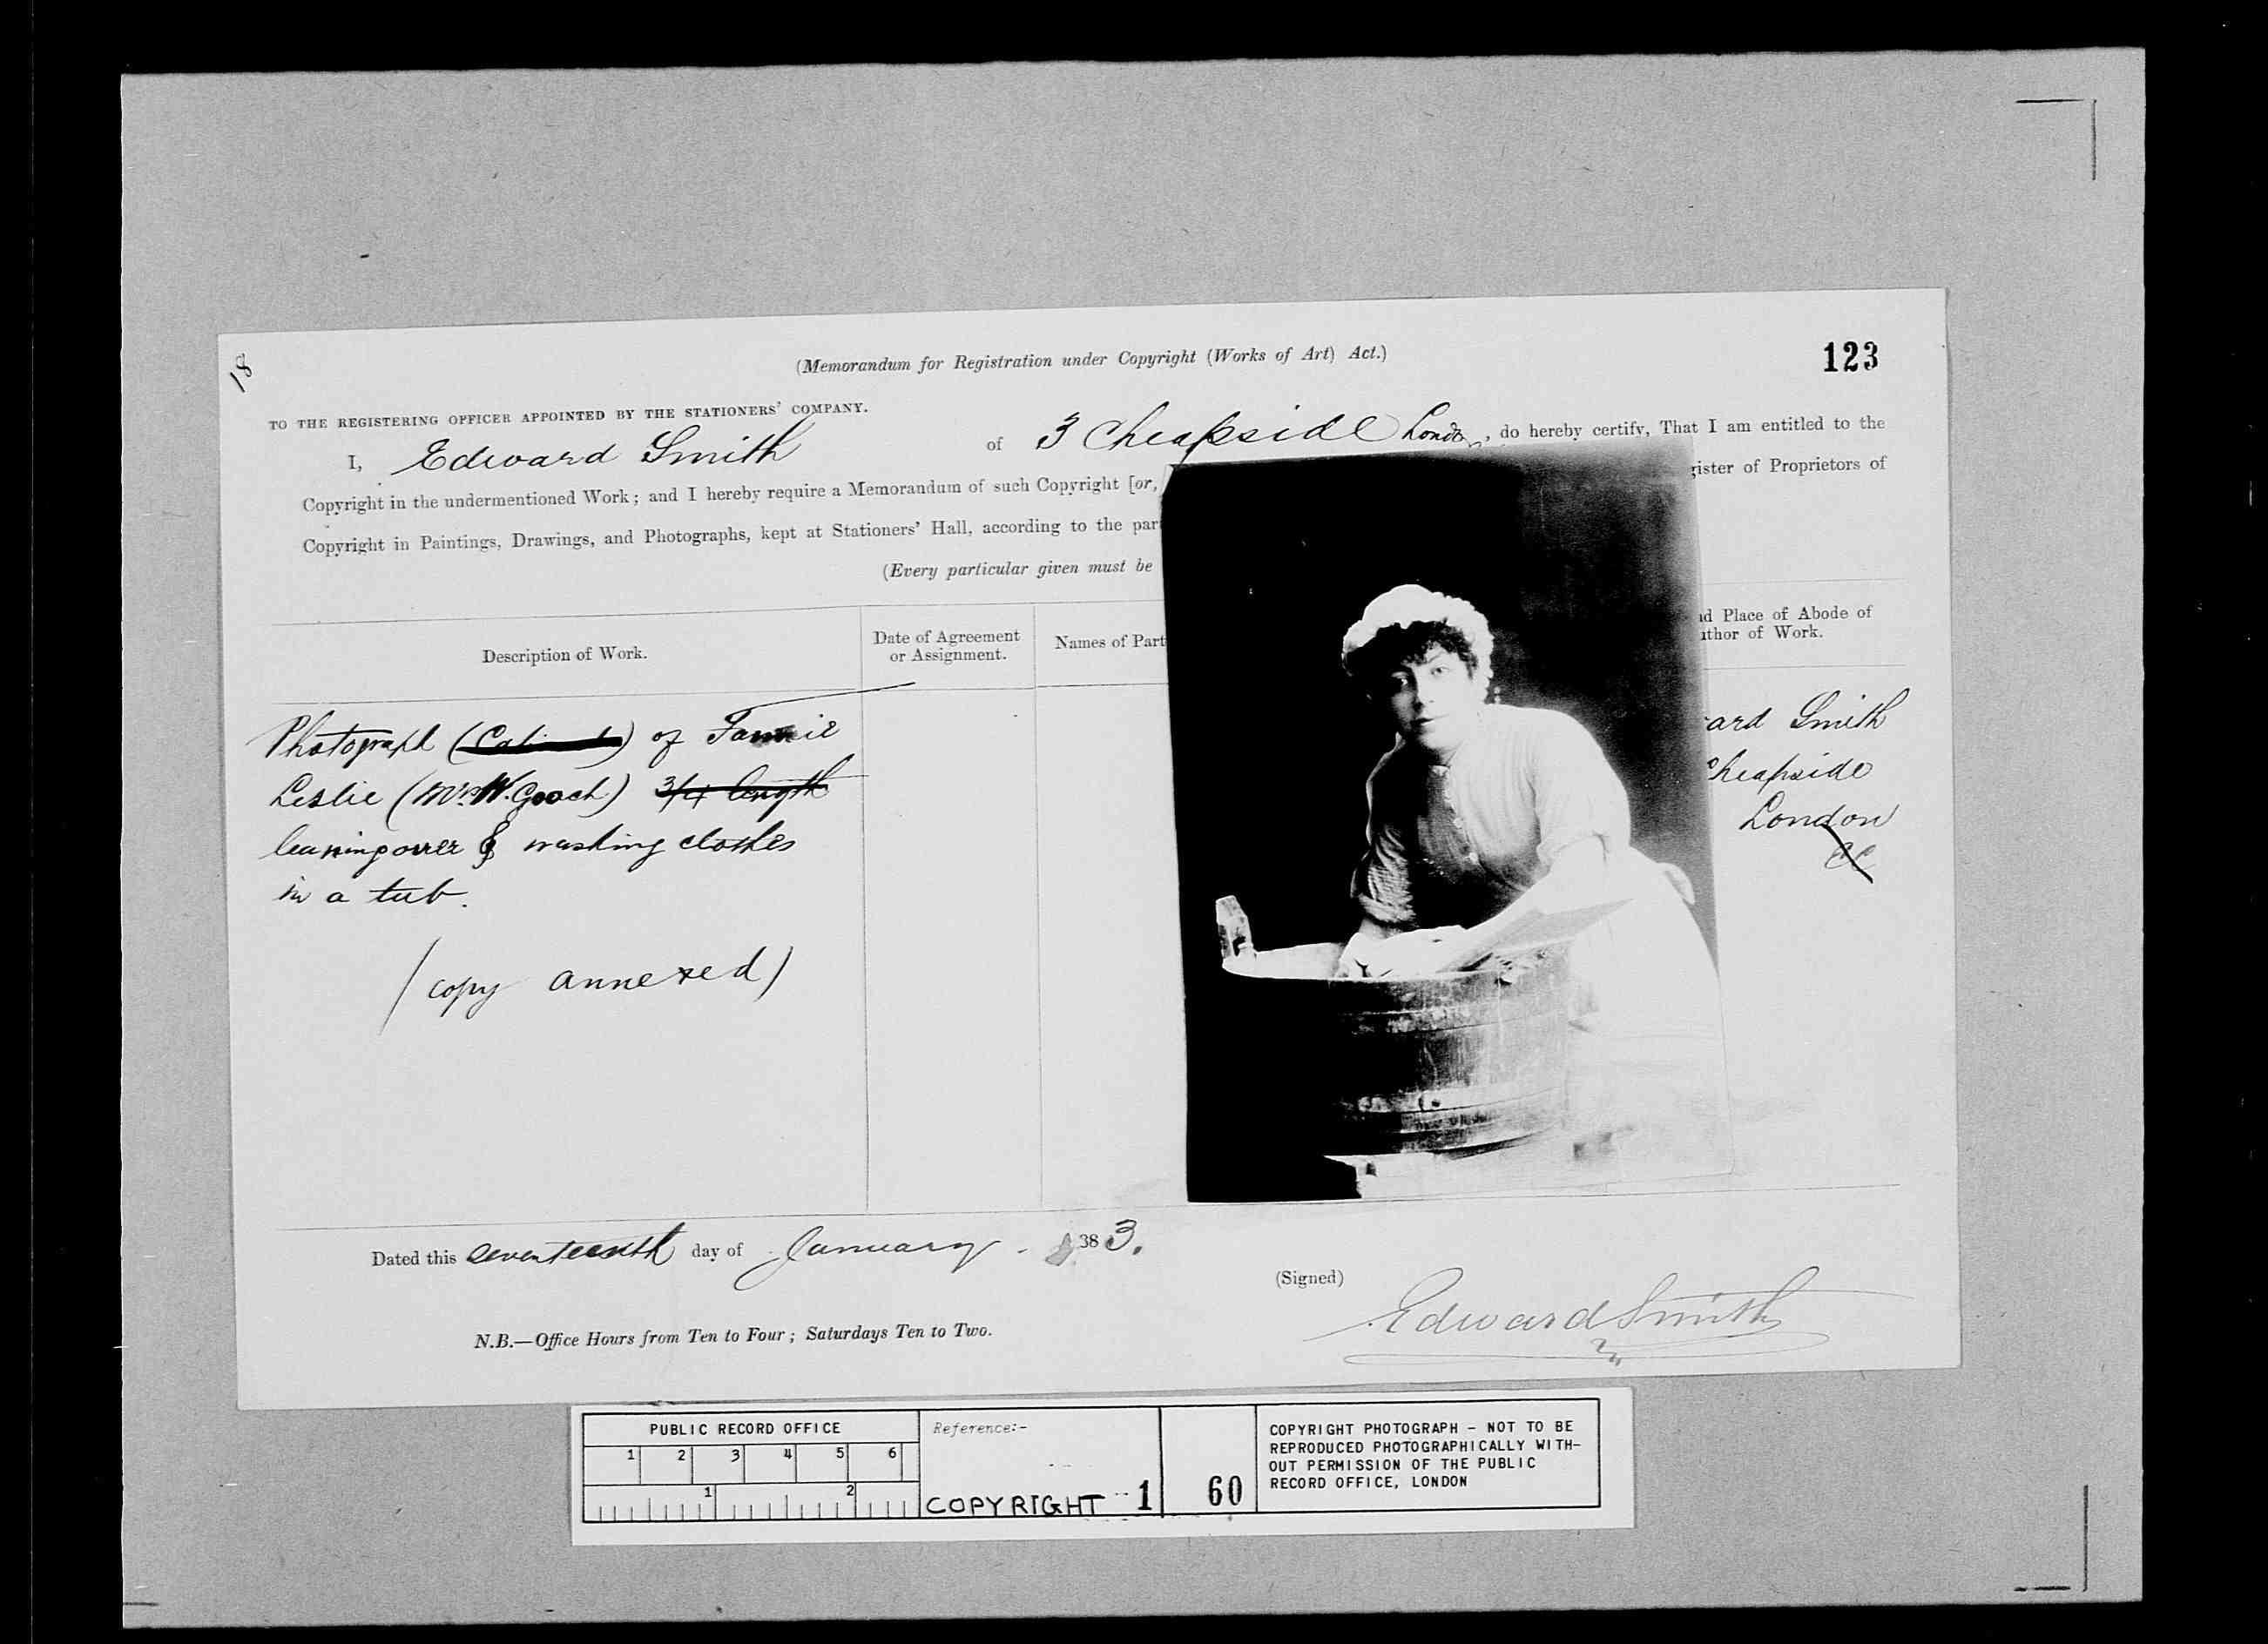 18
(Memorandum for Registration under Copyright (Works of Art) Act.)
123
TO THE REGISTERING OFFICER APPOINTED BY THE STATIONERS' COMPANY.
I, Edward Smith of 3 Cheapside London, do hereby certify, That I am entitled to the
Copyright in the undermentioned Work; and I hereby require a Memorandum of such Copyright [or, gister of Proprietors of
Copyright in Paintings, Drawings, and Photographs, kept at Stationers' Hall, according to the par
(Every particular given must be
Description of Work.
Date of Agreement
or Assignment.
Names of Part
nd Place of Abode of
uthor of Work.
Photograph () of Fannie
Leslie (Mrs W. Gooch) 3/4 length
leaning over & washing clothes
in a tub.
(copy annexed)
ard Smith
Cheapside
London
Dated this seventeenth day of January. 1883.
(Signed)
Edward Smith
N.B.—Office Hours from Ten to Four; Saturdays Ten to Two.
PUBLIC RECORD OFFICE
1 2 3 4 5 6
1 2
Reference:-
COPYRIGHT 1
60
COPYRIGHT PHOTOGRAPH - NOT TO BE
REPRODUCED PHOTOGRAPHICALLY WITH-
OUT PERMISSION OF THE PUBLIC
RECORD OFFICE, LONDON